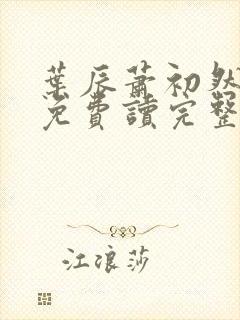 葉辰蕭初然
免費讀完整
江浪莎